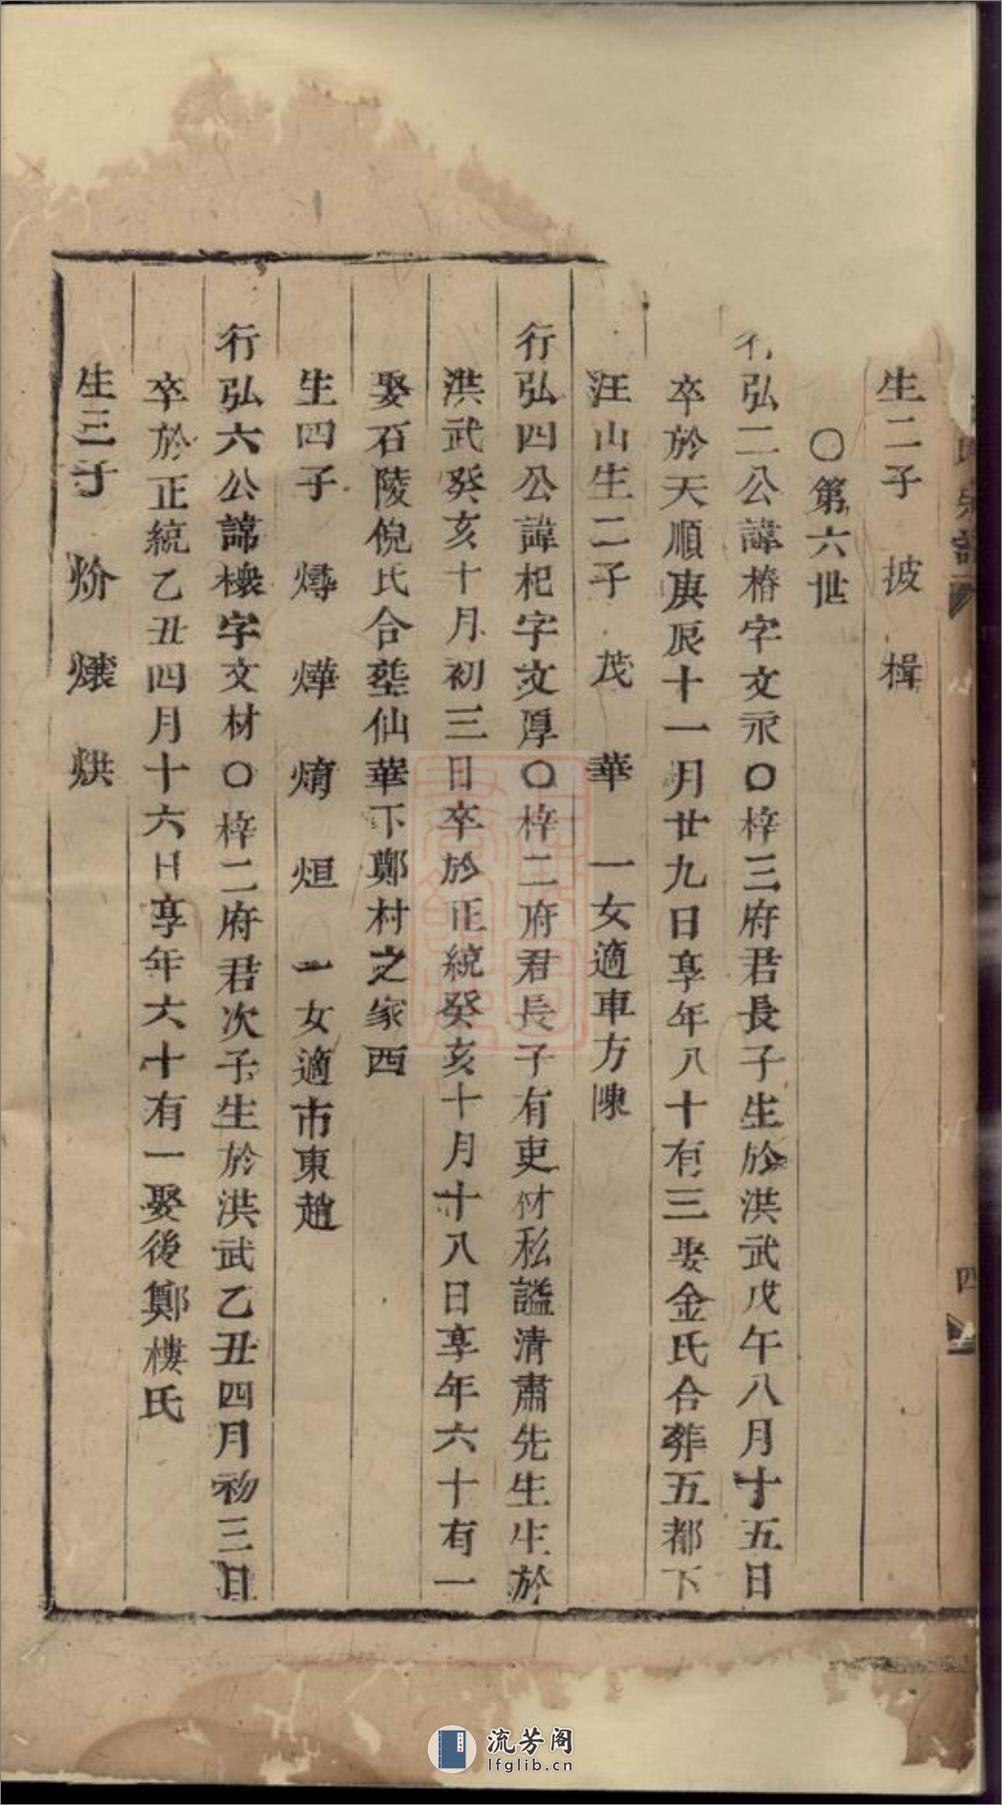 生二子 披 楫
〇第六世
行弘二公諱椿字文永〇梓三府君長子生於洪武戊午八月十五日
卒於天順庚辰十一月廿九日享年八十有三娶金氏合葬五都下
汪山生二子 茂 華 一女適車方陳
行弘四公諱杞字文厚〇梓二府君長子有吏材私謚清肅先生生於
洪武癸亥十月初三日卒於正統癸亥十月十八日享年六十有一
娶石陵倪氏合塟仙華下鄭村之家西
生四子 燖 燁 焴 烜 一女適市東趙
行弘六公諱櫰字文材〇梓二府君次子生於洪武乙丑四月初三日
卒於正統乙丑四月十六日享年六十有一娶後鄭樓氏
生三子 炌 烘
四
流芳阁
lfglib.cn